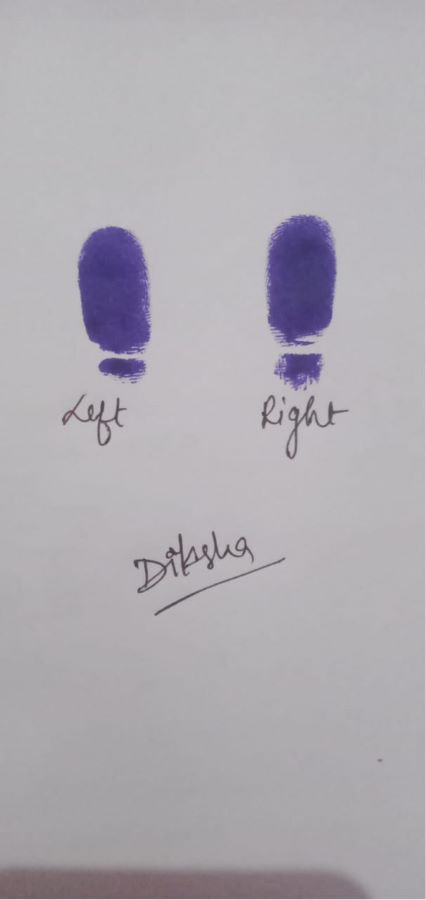 Left Right
Diksha